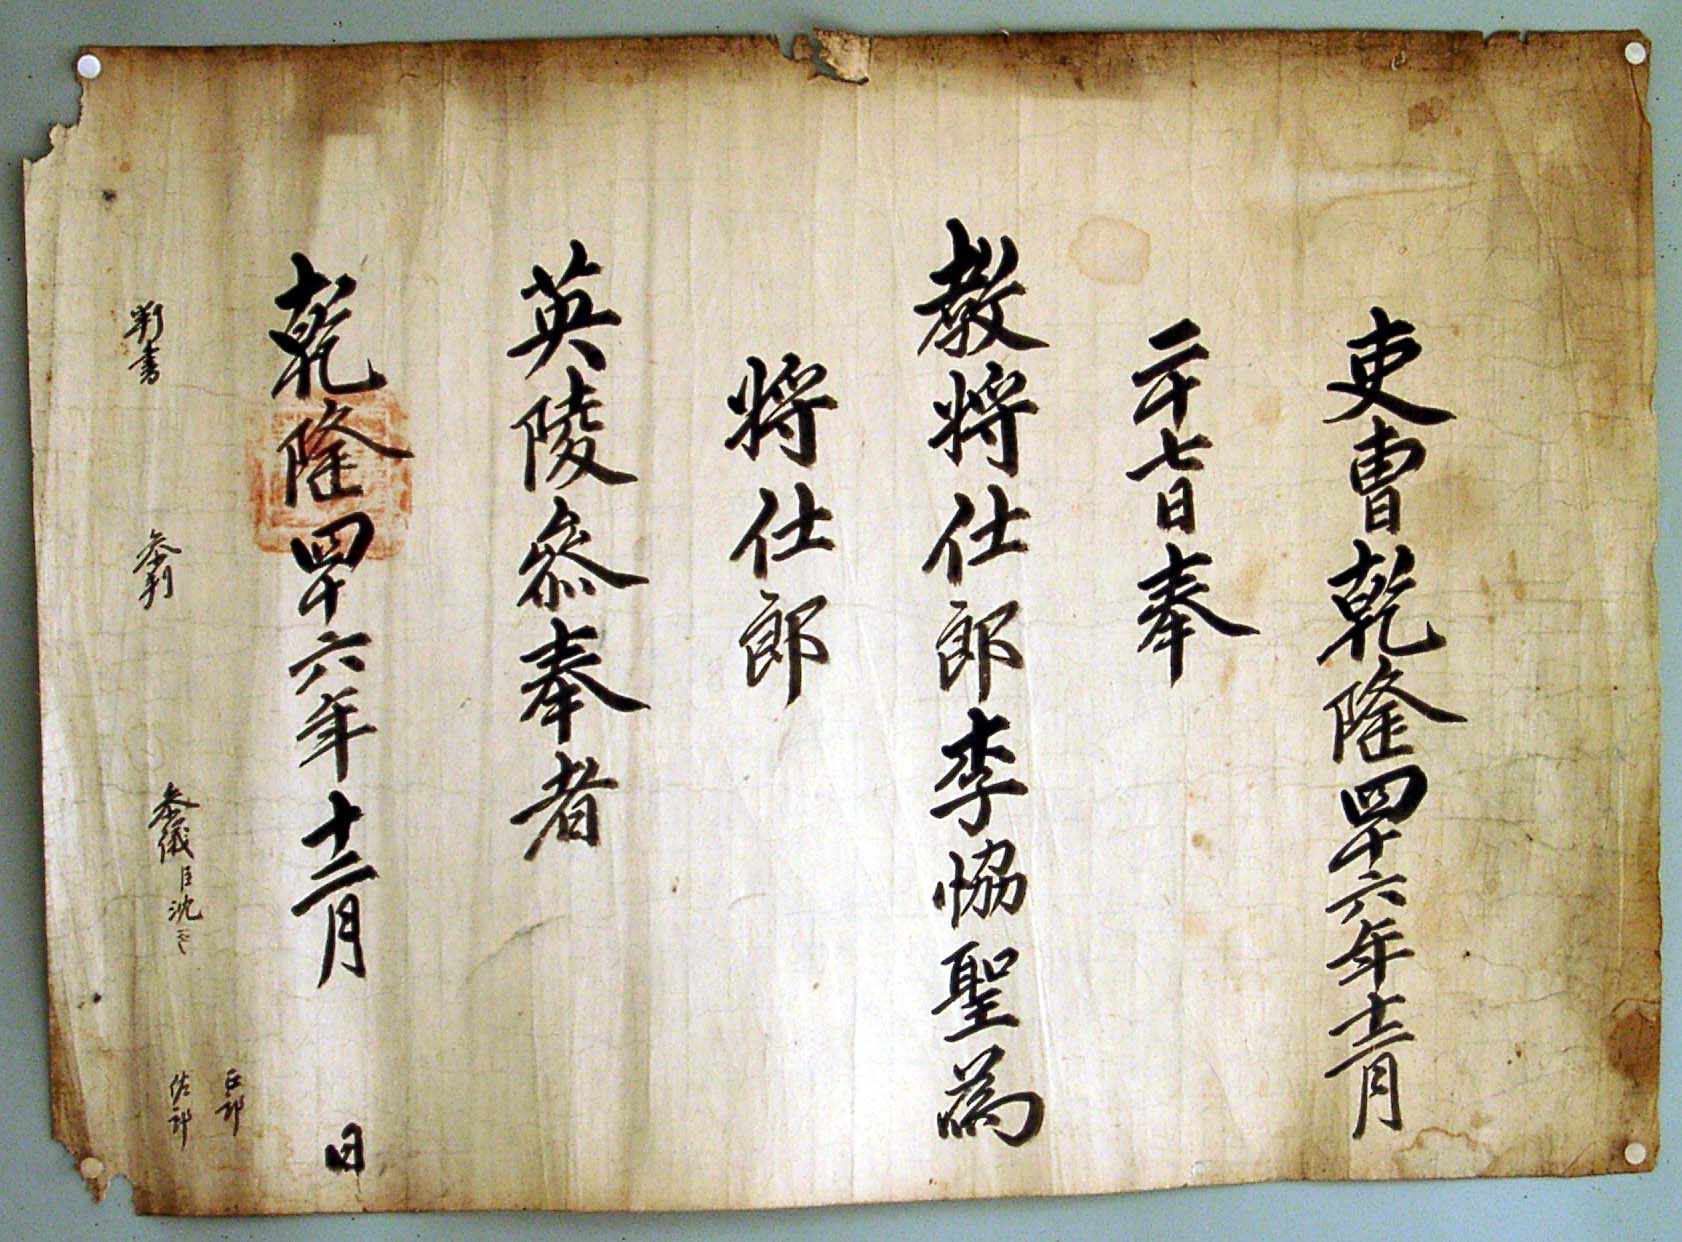 吏曹乾隆四十六年十二月
二十七日奉
教將仕郎李恊聖為
將仕郎
英陵叅奉者
乾隆四十六年十二月 日
判書 叅判 叅議臣沈 正郎
佐郎